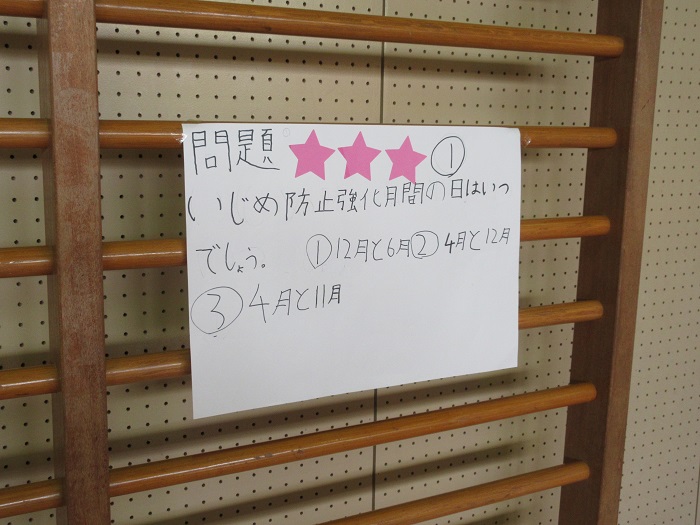 問題 ★★★ ①
いじめ防止強化月間の日はいつ
でしょう。 ①12月と6月② 4月と12月
③ 4月と11月